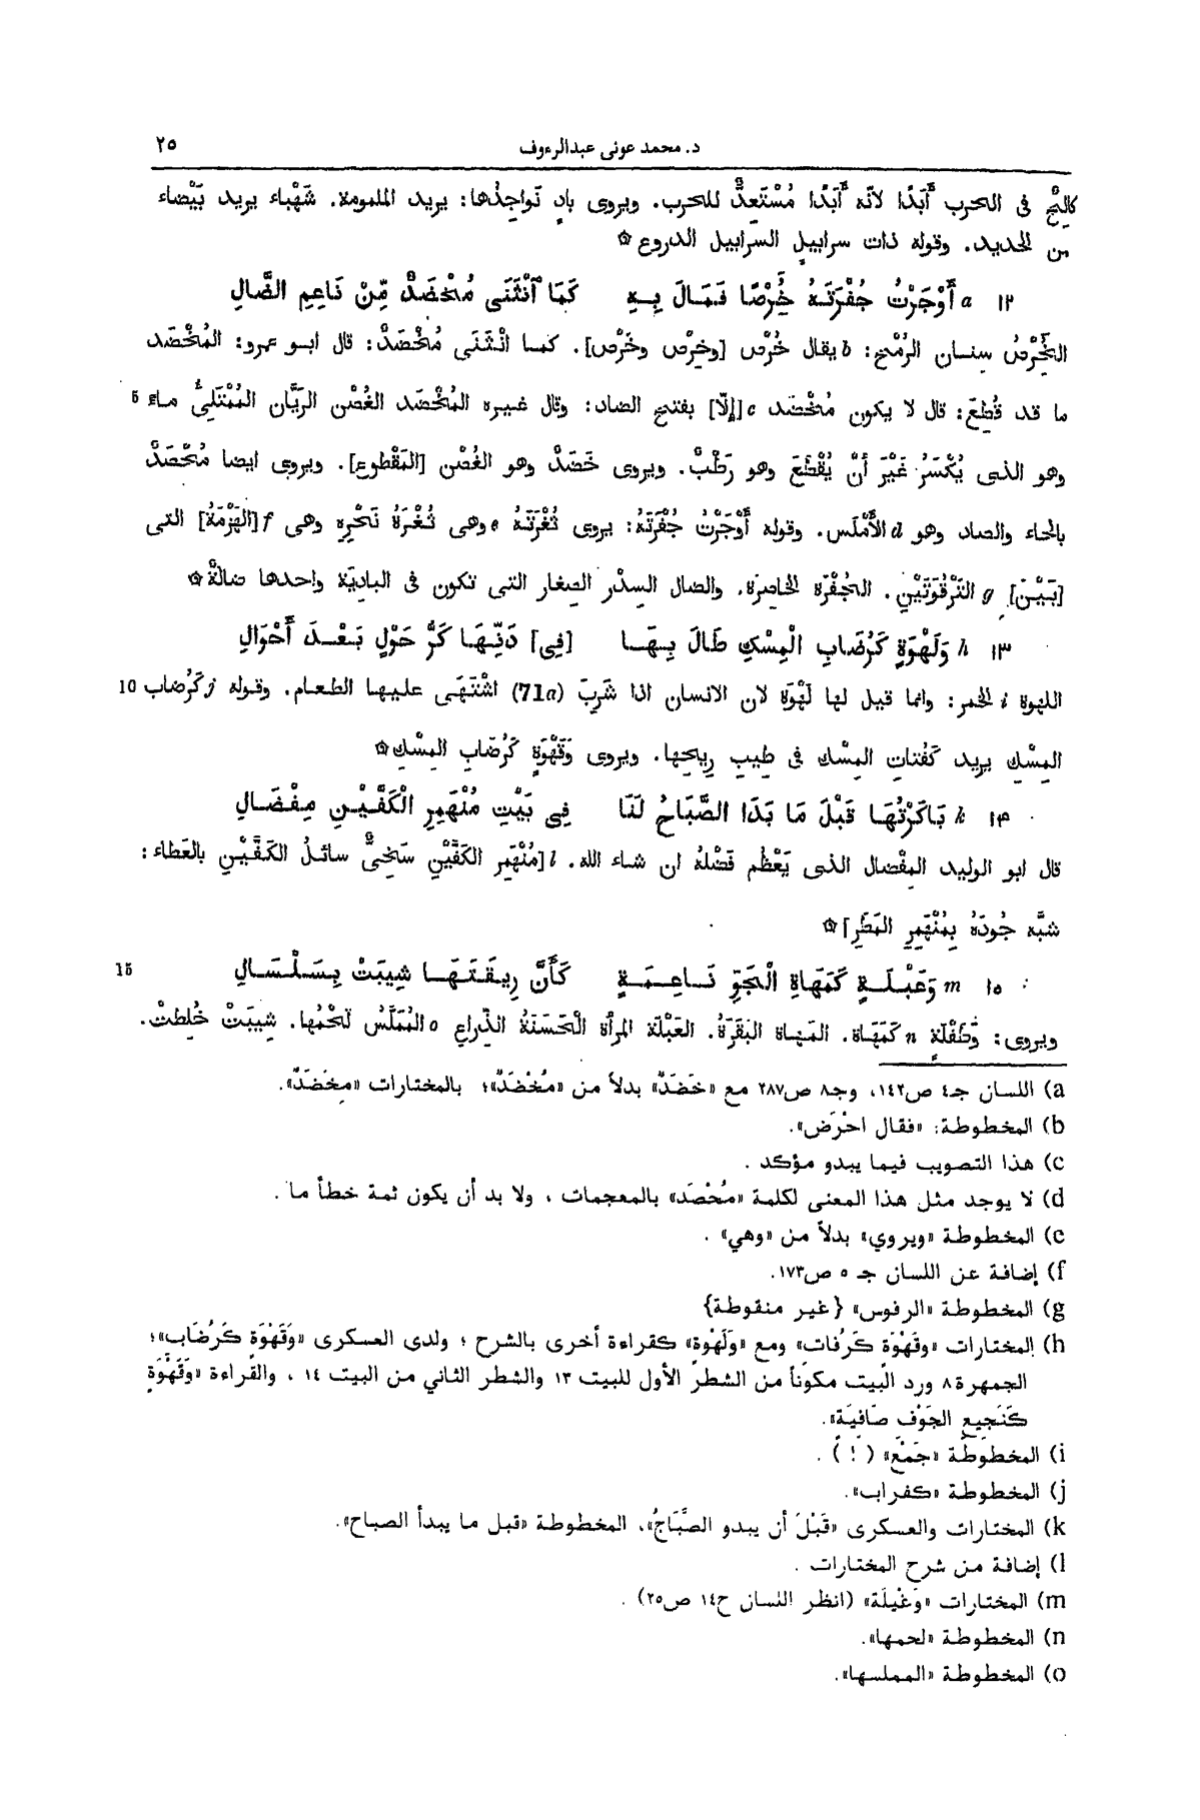 د. محمد عونى عبدالرءوف ٢٥
كالِحٌ فى الحرب أَبَدًا لانّه أَبَدًا مُسْتَعِدٌّ للحرب. ويروى بادٍ نَواجِذُها: يريد الملمومة. شَهْباء يريد بَيْضاء
من الحديد. وقوله ذات سرابيلٍ السّرابيل الدروع ۞
١٢ a أَوْجَرْتُ جُفْرَتَهُ خُرْصًا فَمَالَ بِهِ كَمَا ٱنْثَنَى مُخْضَدٌ مِّنْ نَاعِمِ الضَّالِ
الخُرْصُ سِنان الرُمْح: b يقال خُرْص [وخِرْص وخَرْص]. كما انْثَنَى مُخْضَدٌ: قال ابو عمرو: المُخْضَد
ما قد قُطِعَ: قال لا يكون مُخْضَد c [إلّا] بفتح الضاد: وقال غيره المُخْضَد الغُصْن الرَيَّان المُمْتَلِئُ ماء 5
وهو الذى يُكْسَرُ غَيْرَ أَنْ يُقْطَعَ وهو رَطْبٌ. ويروى خَضَدٌ وهو الغُصْن [المَقْطوع]. ويروى ايضا مُحْصَدٌ
بالحاء والصاد وهو d الأَمْلَس. وقوله أَوْجَرْتُ جُفْرَتَهُ: يروى ثُغْرَتَهُ e وهى ثُغْرَةُ نَحْرِهِ وهى f [الهَزْمَةُ] التى
[بَيْنَ] g التَرْقُوَتَيْنِ. الجُفْرَة الخاصِرَة. والضال السِدْر الصِغار التى تكون فى البادِيَة واحدها ضالَةٌ ۞
١٣ h وَلَهْوَةٍ كَرُضَابِ الْمِسْكِ طَالَ بِهَا [فِي] دَنِّهَا كَرُّ حَوْلٍ بَعْدَ أَحْوَالِ
اللهوة i الخمر: وانما قيل لها لَهْوَة لان الانسان اذا شَرِبَ (71a) اشْتَهَى عليها الطعام. وقوله j كَرُضاب 10
المِسْكِ يريد كَفُتاتِ المِسْك فى طِيبِ رِيحِها. ويروى وَقَهْوَةٍ كَرُضَابِ المِسْكِ ۞
١٤ k بَاكَرْتُهَا قَبْلَ مَا بَدَا الصَّبَاحُ لَنَا فِي بَيْتِ مُنْهَمِرِ الْكَفَّيْنِ مِفْضَالِ
قال ابو الوليد المِفْضال الذى يَعْظُم فَضْلُهُ ان شاء الله. l [مُنْهَمِر الكَفَّيْنِ سَخِىٌّ سائلُ الكَفَّيْنِ بالعَطاء:
شبَّه جُودَهُ بِمُنْهَمِرِ المَطَرِ] ۞
١٥ m وَعَبْلَةٍ كَمَهَاةِ الْجَوِّ نَاعِمَةٍ كَأَنَّ رِيقَتَهَا شِيبَتْ بِسَلْسَالِ 15
ويروى: وَطَفْلَةٍ n كَمَهَاة. المَهاة البَقَرَةُ. العَبْلَة المرأة الْحَسَنَةُ الذِّراعِ o المُمَلَّسُ لَحْمُها. شِيبَتْ خُلِطتْ.
a) اللسان جـ٤ ص١٤٢، وجـ٨ ص٢٨٧ مع «خَضَدٌ» بدلاً من «مُخْضَدٌ»؛ بالمختارات «مِخضَدٌ».
b) المخطوطة: «فقال احْرَض».
c) هذا التصويب فيما يبدو مؤكد .
d) لا يوجد مثل هذا المعنى لكلمة «مُحْصَد» بالمعجمات ، ولا بد أن يكون ثمة خطأ ما .
e) المخطوطة «ويروي» بدلاً من «وهي» .
f) إضافة عن اللسان جـ ٥ ص١٧٣.
g) المخطوطة «الرفوس» {غير منقوطة}
h) المختارات «وقَهْوَة كَرُفات» ومع «وَلَهْوة» كقراءة أخرى بالشرح ؛ ولدى العسكرى «وَقَهْوَة كَرُضَاب»؛
الجمهرة٨ ورد البيت مكوناً من الشطر الأول للبيت ١٣ والشطر الثاني من البيت ١٤ ، والقراءة «وَقَهْوَةٍ
كَنَجيع الجَوْف صَافيَة».
i) المخطوطة «جَمْعَ» ( ! ) .
j) المخطوطة «كفراب».
k) المختارات والعسكرى «قَبْلَ أن يبدو الصَّبَاحُ»، المخطوطة «قبل ما يبدأ الصباح».
l) إضافة من شرح المختارات .
m) المختارات «وَغْيلَة» (انظر اللسان ح١٤ ص٢٥) .
n) المخطوطة «لحمها».
o) المخطوطة «المملسها».